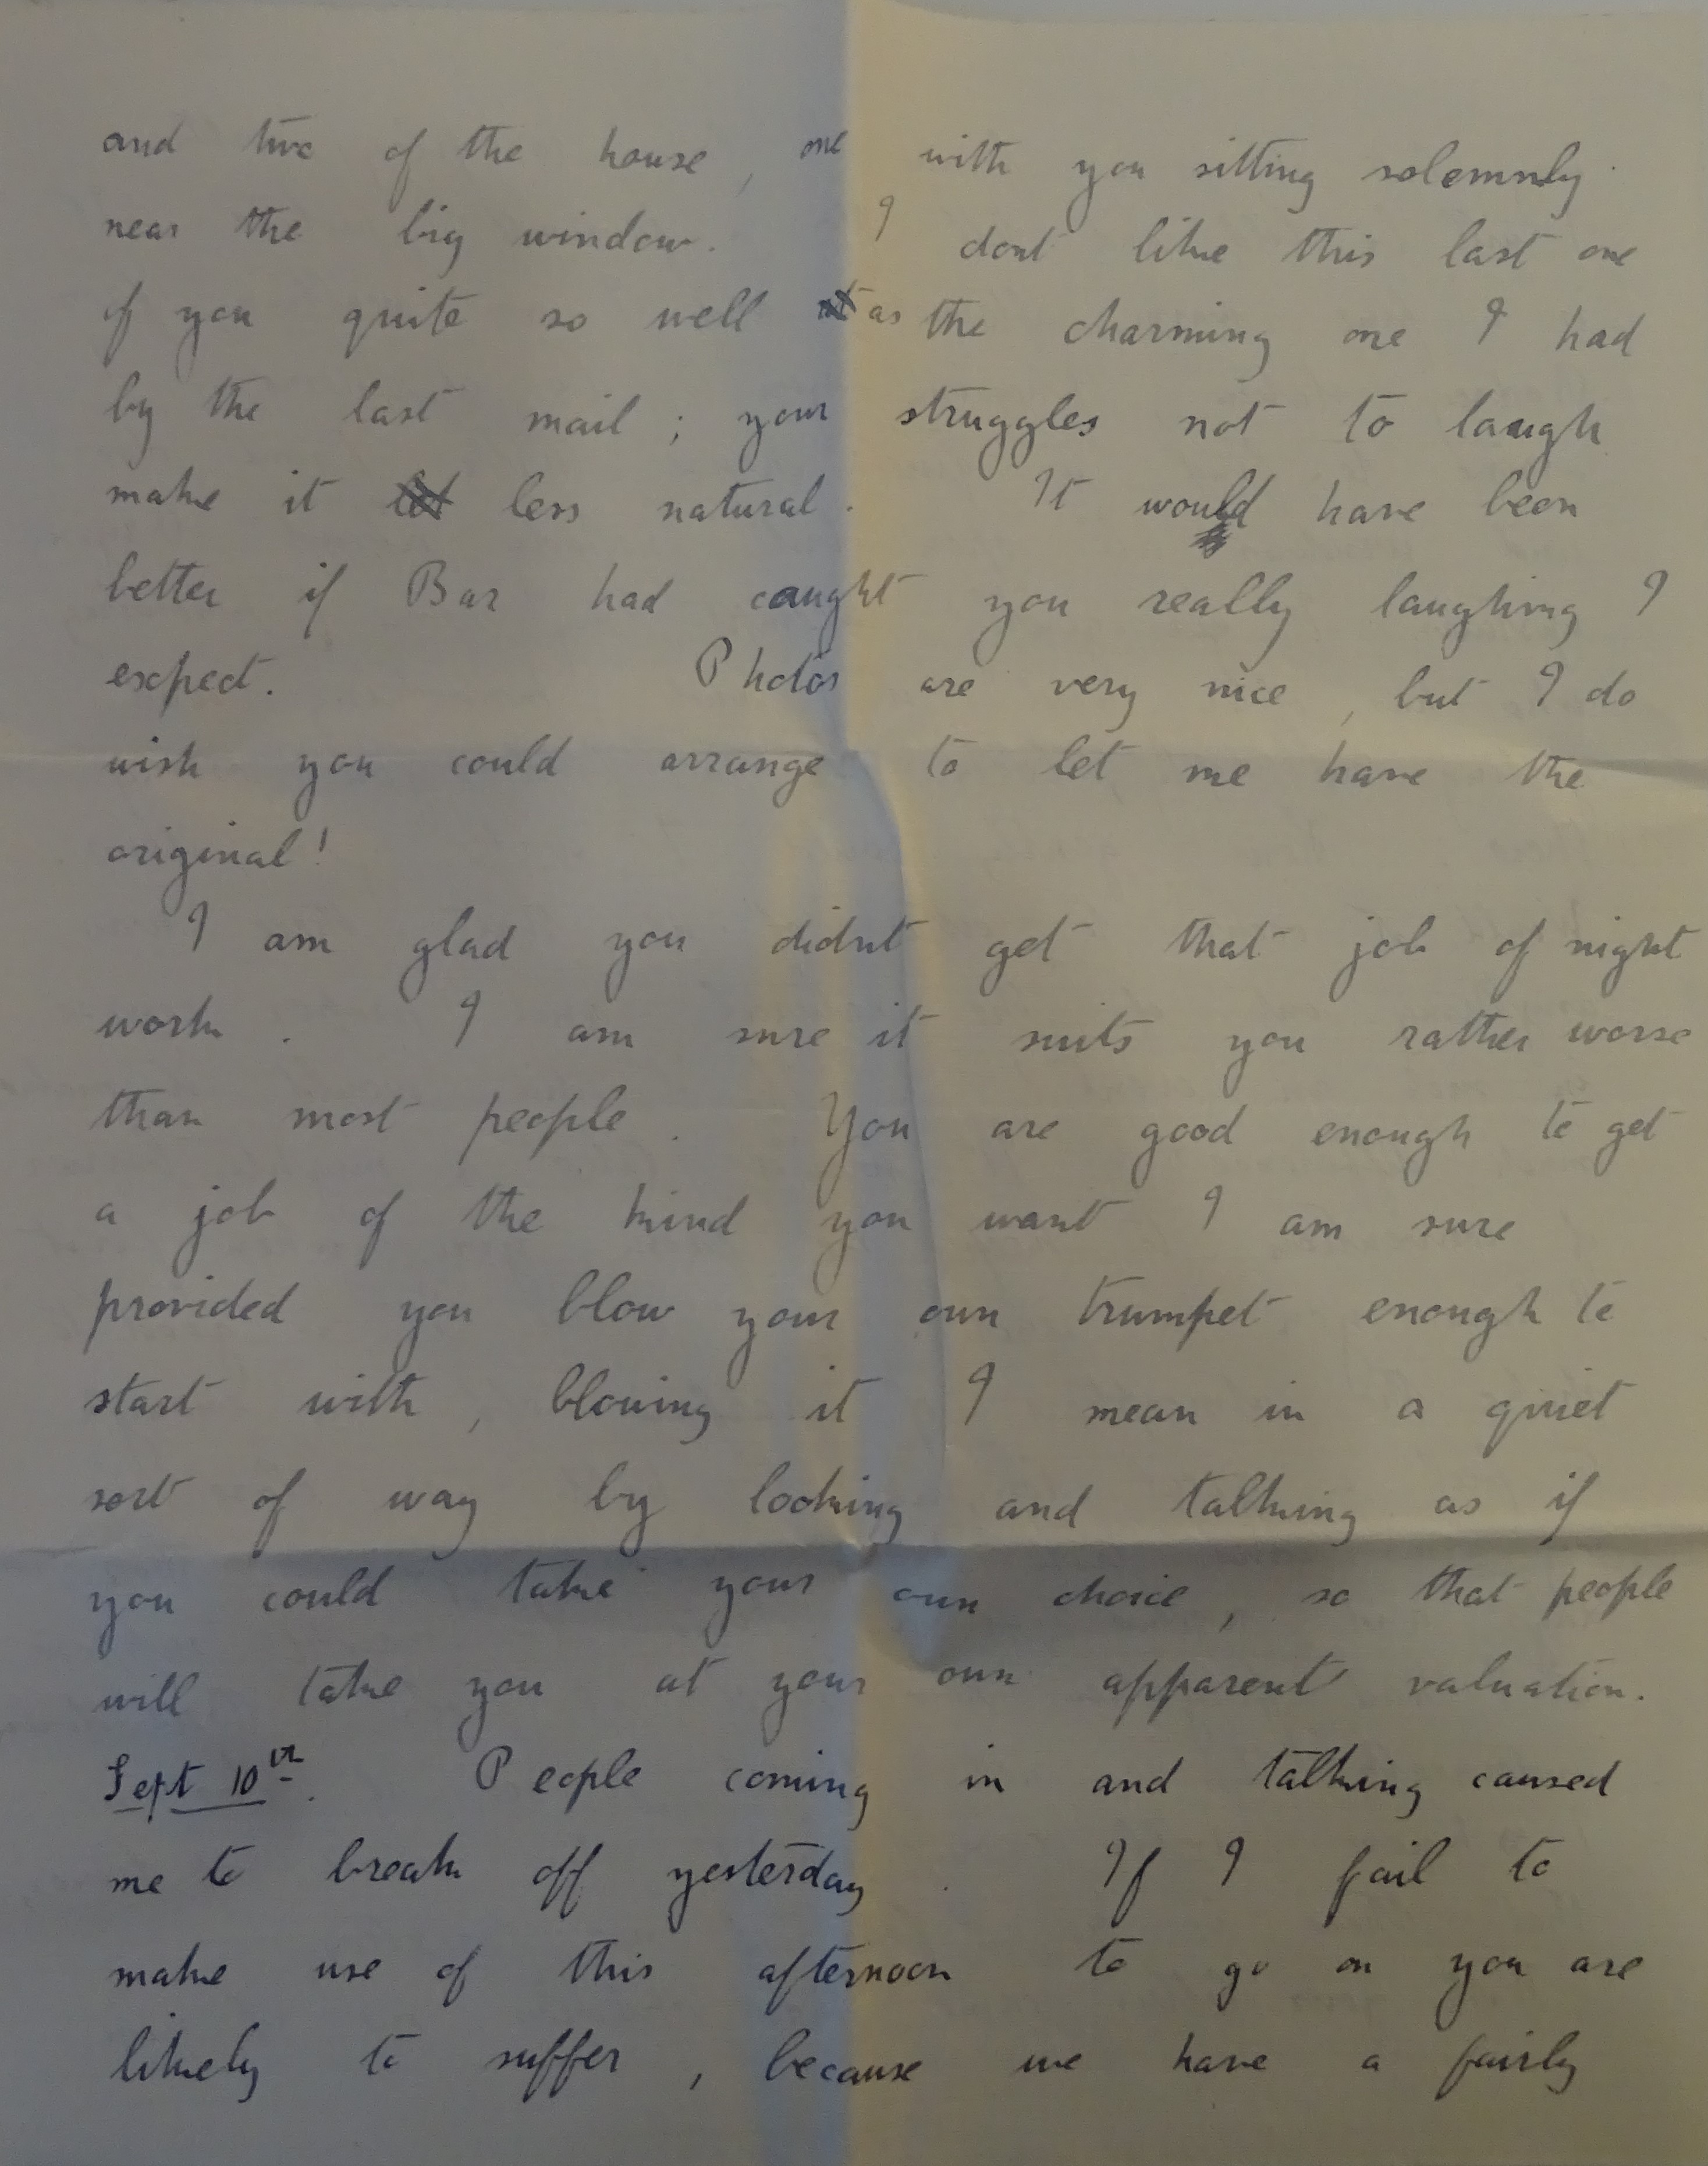 and two of the house, one with you sitting solemnly
near the big window. I dont like this last one
of you quite so well as the charming one I had
by the last mail; your struggles not to laugh
make it less natural. It would have been
better if Bar had caught you really laughing I
expect. Photos are very nice, but I do
wish you could arrange to let me have the
original!
I am glad you didnt get that job of night
work. I am sure it suits you rather worse
than most people. You are good enough to get
a job of the kind you want I am sure
provided you blow your own trumpet enough to
start with, blowing it I mean in a quiet
sort of way by looking and talking as if
you could take your own choice, so that people
will take you at your own apparent valuation.
Sept 10th. People coming in and talking caused
me to break off yesterday. If I fail to
make use of this afternoon to go on you are
likely to suffer, because we have a fairly